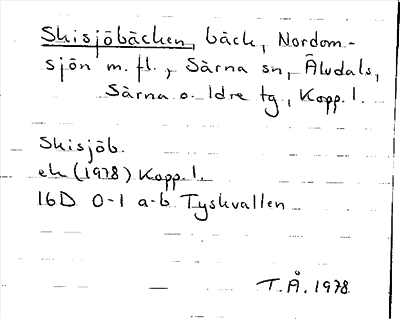 Skisjöbäcken, bäck, Nordom-
sjön m. fl., Särna sn, Älvdals,
Särna o. Idre tg., Kopp. l.
Skisjöb.
ek (1978) Kopp. l.
16D 0-1 a-b Tyskvallen
T.Å. 1978